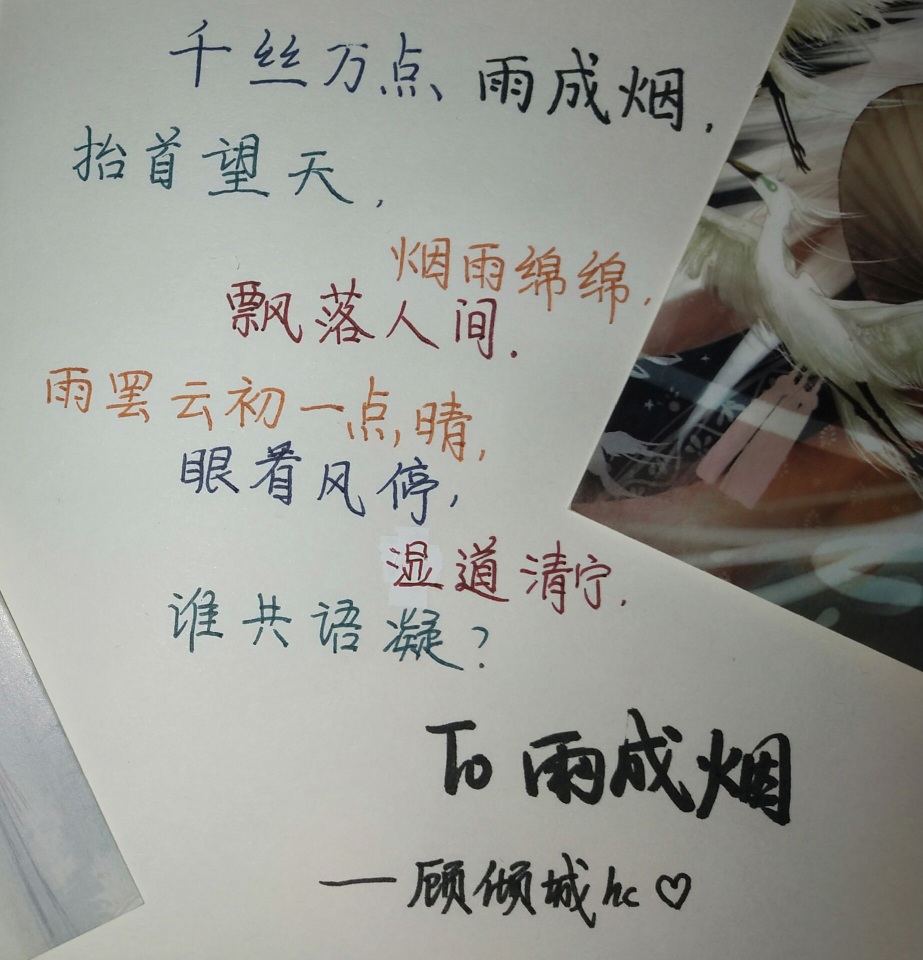 千丝万点、雨成烟，
抬首望天，
烟雨绵绵，
飘落人间．
雨罢云初一点，晴，
眼看风停，
湿道清宁，
谁共语凝？
To 雨成烟
——顾倾城hc♡